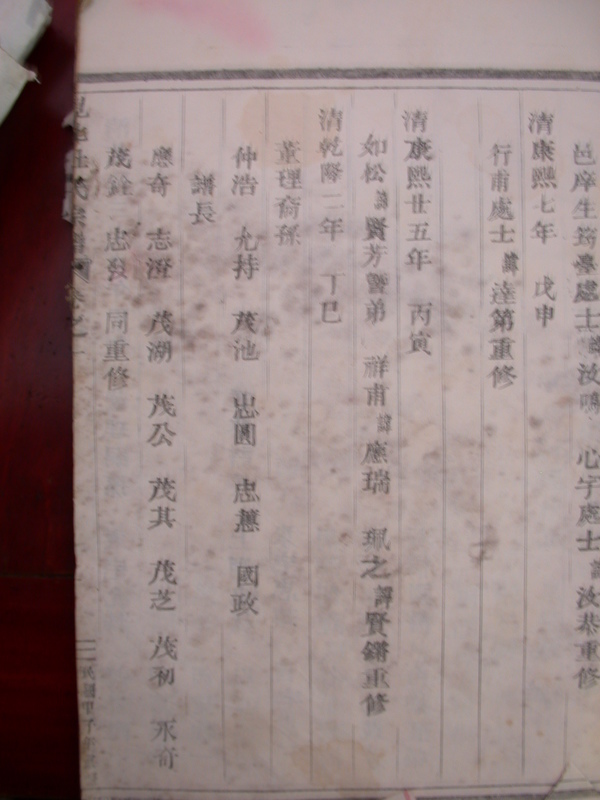 邑庠生筠臺處士諱汝鳴 心宇處士諱汝恭重修
清康熙七年 戊申
行甫處士諱達第重修
清康熙廿五年 丙寅
如松諱賢芳暨弟 祥甫諱應瑞 珮之諱賢鏘重修
清乾隆二年 丁巳
董理裔孫
仲浩 允持 茂池 忠圓 忠蕙 國政
譜長
應奇 志澄 茂湖 茂公 茂其 茂芝 茂初 永奇
茂銓 忠發 同重修
氏宗譜 卷之一